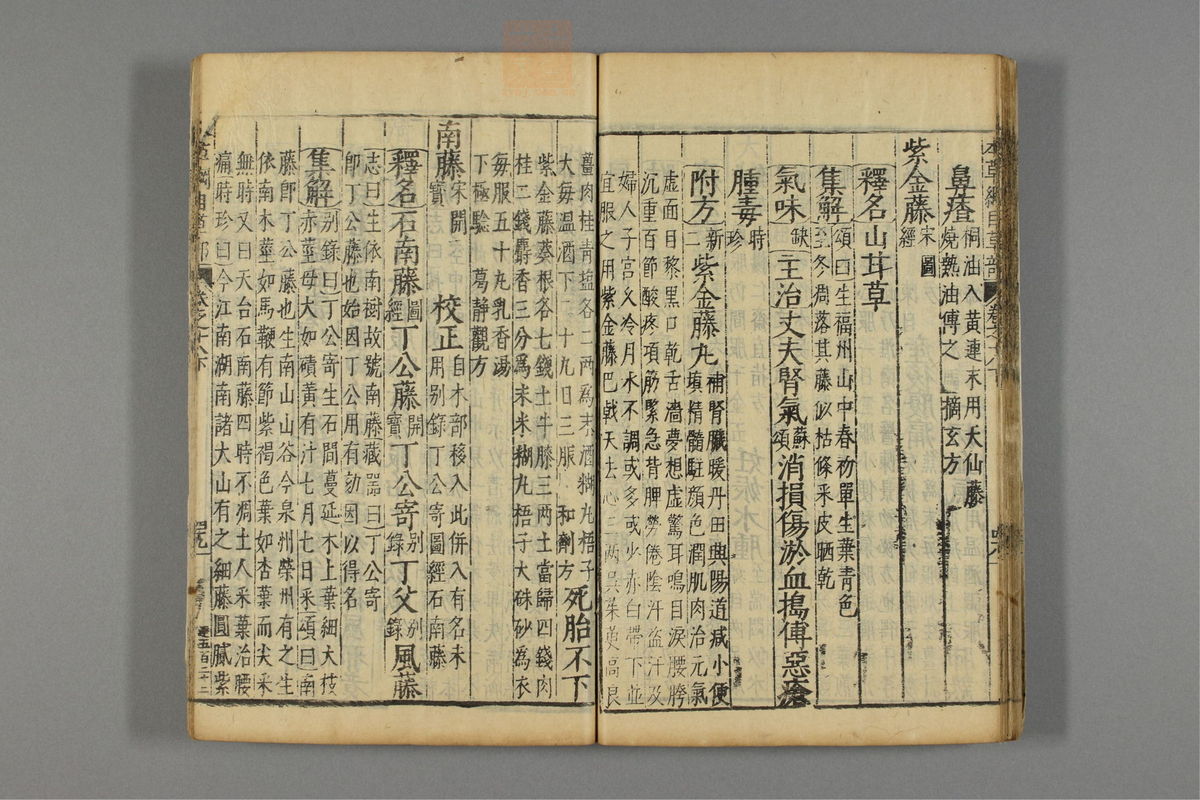 本草綱目草部
卷之十八下
鼻瘡 桐油入黃連末用天仙藤
燒熱油傅之 摘玄方
紫金藤 宋圖
經
釋名 山甘草
集解 頌曰生福州山中春初單生葉青色
至冬凋落其藤似枯條采皮晒乾
氣味 缺 主治丈夫腎氣 蘇
頌 消損傷淤血搗傅惡瘡
腫毒 時
珍
附方 新
二 紫金藤丸 補腎臟暖丹田興陽道減小便
填精髓駐顏色潤肌肉治元氣
虛面目黎黑口乾舌濇夢想虛驚耳鳴目淚腰胯
沉重百節酸疼項筋緊急背胛勞倦陰汗盜汗及
婦人子宮久冷月水不調或多或少赤白帶下並
宜服之用紫金藤巴戟天去心三兩吳茱萸高良
薑肉桂青鹽各二兩爲末酒糊丸梧子
大每温酒下二十丸日三服 和劑方 死胎不下
紫金藤葵根各七錢土牛膝三兩土當歸四錢肉
桂二錢麝香三分爲末米糊丸梧子大硃砂爲衣
每服五十丸乳香湯
下極驗 葛靜觀方
南藤 宋開
寶 校正 自木部移入此併入有名未
用別錄丁公寄圖經石南藤
釋名 石南藤 圖
經 丁公藤 開
寶 丁公寄 別
錄 丁父 別
錄 風藤
志曰生依南樹故號南藤藏器曰丁公寄
卽丁公藤也始因丁公用有効因以得名
集解 別錄曰丁公寄生石間蔓延木上葉細大枝
赤莖母大如磧黃有汁七月七日采頌曰南
藤卽丁公藤也生南山山谷今泉州榮州有之生
依南木莖如馬鞭有節紫褐色葉如杏葉而尖采
無時又曰天台石南藤四時不凋土人采葉治腰
痛時珍曰今江南湖南諸大山有之細藤圓膩紫
卷之十八下
五百二十二